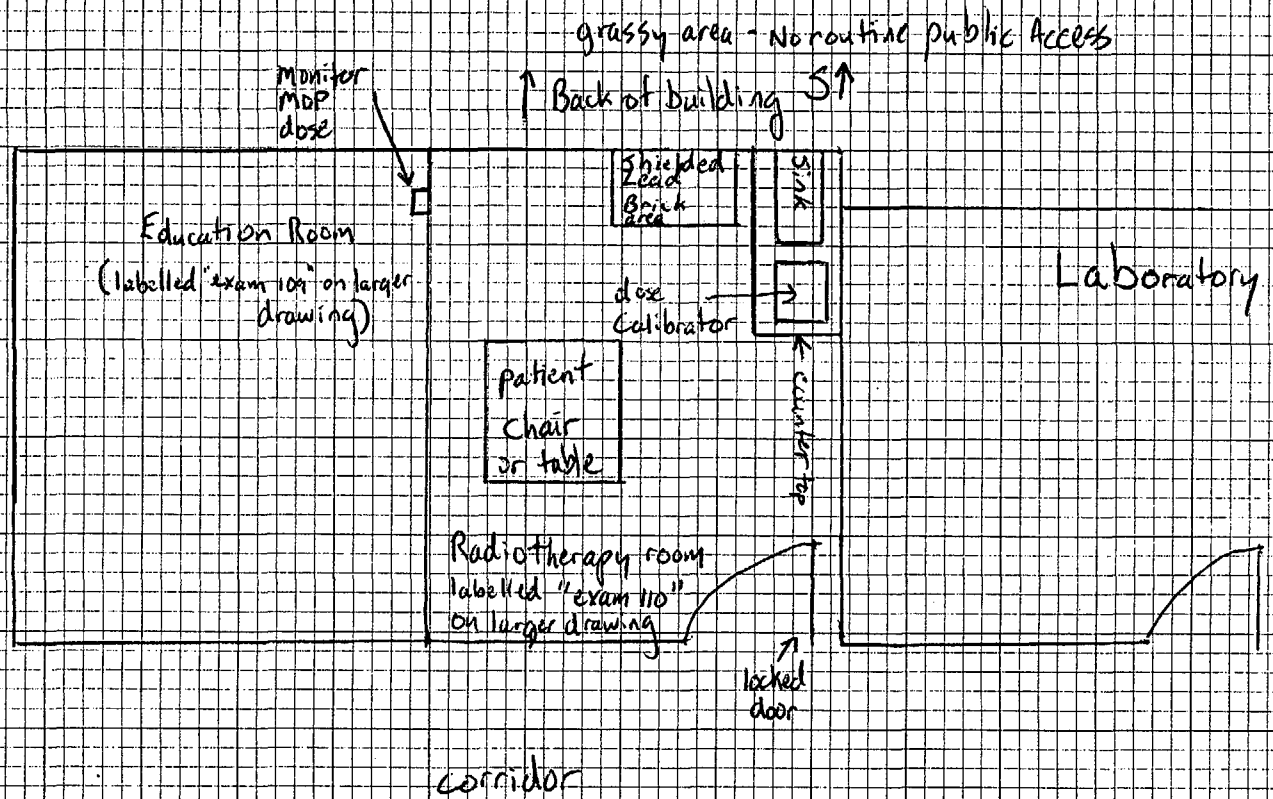 grassy area - No routine public Access
Monitor
MOP
dose
↑ Back of building S↑
Shielded
Lead
Brick
area
Sink
Education Room
(labelled "exam 109" on larger
drawing)
Laboratory
dose
Calibrator
counter top
patient
chair
or table
Radiotherapy room
labelled "exam 110"
on larger drawing
locked
door
corridor